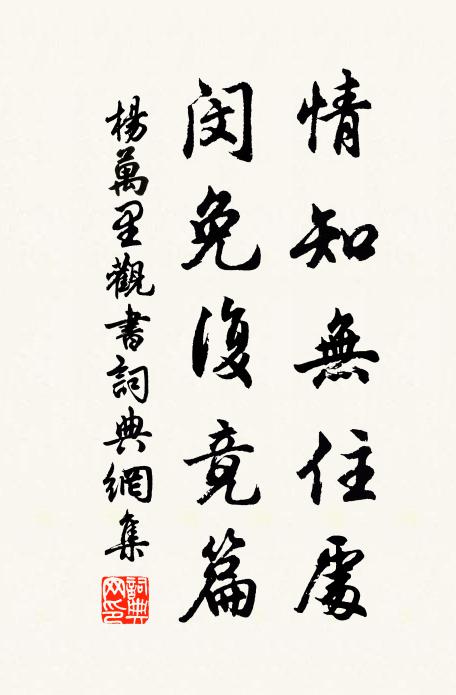 情知無住處
閔免復竟篇
楊萬里觀書詞典網集
詞典网印